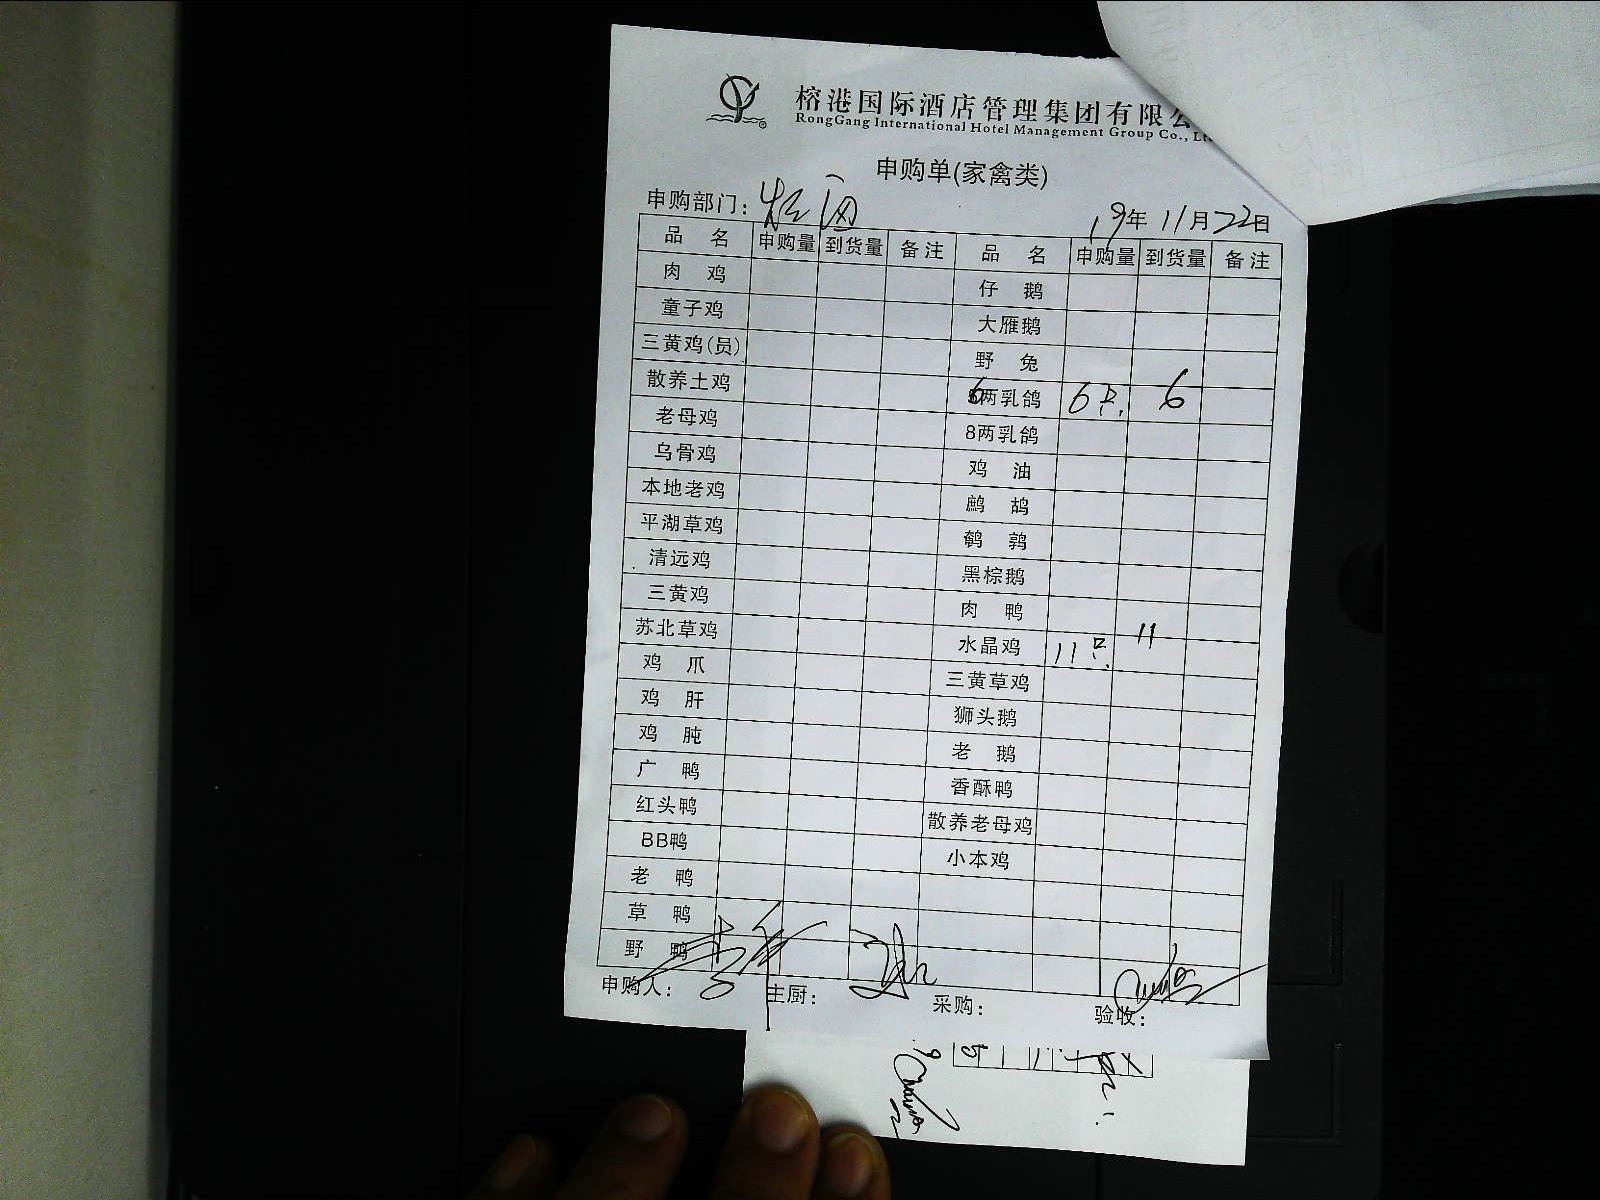 榕港国际酒店管理集团有限公
RongGang International Hotel Management Group Co., Lt
申购单(家禽类)
申购部门: 19年11月22日
品名 申购量 到货量 备注 品名 申购量 到货量 备注
肉鸡 仔鹅
童子鸡 大雁鹅
三黄鸡(员) 野兔
散养土鸡 6两乳鸽 6只. 6
老母鸡 8两乳鸽
乌骨鸡 鸡油
本地老鸡 鹧鸪
平湖草鸡 鹌鹑
清远鸡 黑棕鹅
三黄鸡 肉鸭
苏北草鸡 水晶鸡 11只. 11
鸡爪 三黄草鸡
鸡肝 狮头鹅
鸡肫 老鹅
广鸭 香酥鸭
红头鸭 散养老母鸡
BB鸭 小本鸡
老鸭
草鸭
野鸭
申购人: 主厨: 采购: 验收: